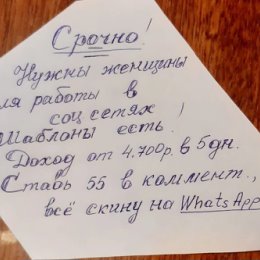 Срочно!
Нужны женщины
ля работы в
соц сетях!
Шаблоны есть.
Доход от 4.700р. в 5дн.
Ставь 55 в коммент.,
всё скину на WhatsApp